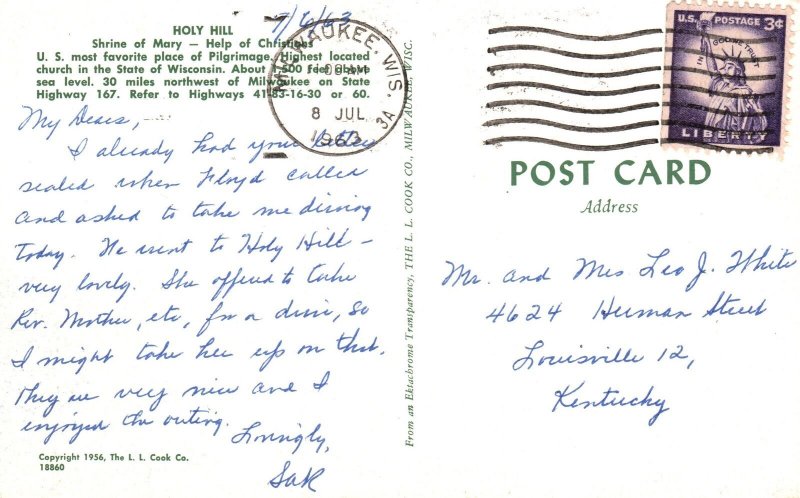 7/6/63
HOLY HILL
Shrine of Mary — Help of Christians
U. S. most favorite place of Pilgrimage. Highest located
church in the State of Wisconsin. About 1,600 feet above
sea level. 30 miles northwest of Milwaukee on State
Highway 167. Refer to Highways 41-83-16-30 or 60.
My Dears,
I already had your letter
sealed when Floyd called
and asked to take me driving
today. We went to Holy Hill –
very lovely. She offered to take
Rev. Mother, etc, for a drive, so
I might take her up on that.
They are very nice and I
enjoyed the outing.
Lovingly,
Copyright 1956, The L. L. Cook Co.
18860
MILWAUKEE, WIS.
AM
8 JUL
1963
3A
From an Ektachrome Transparency, THE L. L. COOK CO., MILWAUKEE, WISC.
U.S. POSTAGE 3¢
IN GOD WE TRUST
LIBERTY
POST CARD
Address
Mr. and Mrs Leo J. White
4624 Herman Street
Louisville 12,
Kentucky